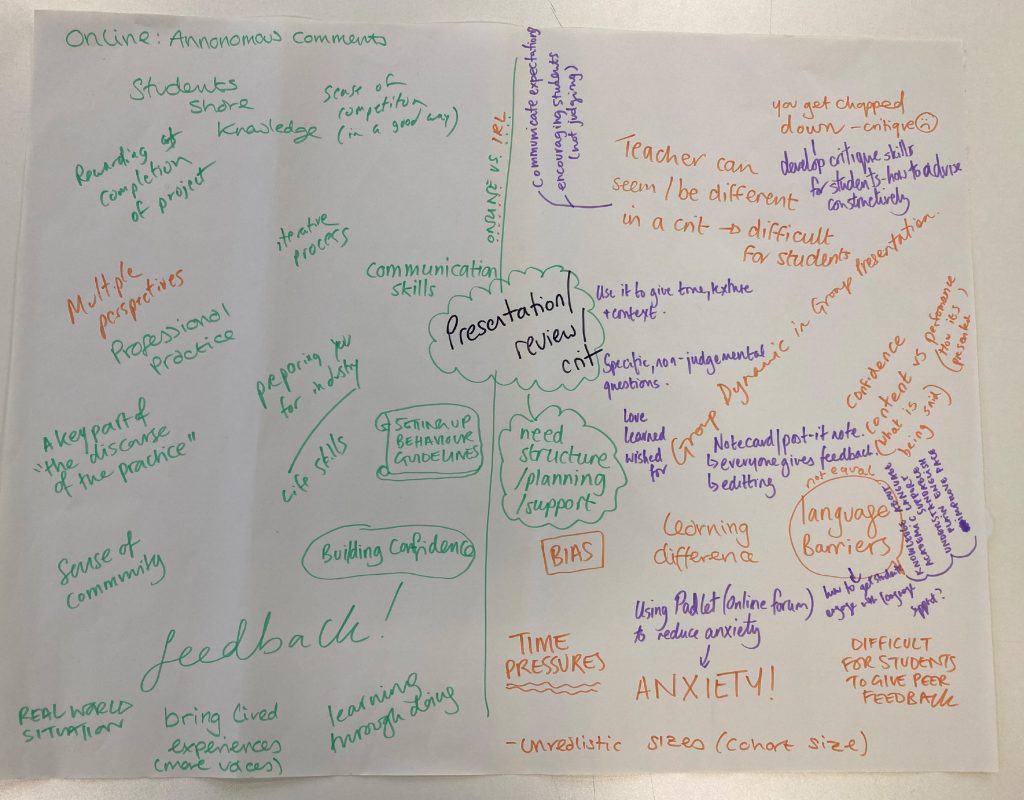 Online: Annonomous comments
Students
share
knowledge
sense of
competition
(in a good way)
Rewarding at
completion
of project
iterative
process
communication
skills
Multiple
perspectives
Professional
Practice
preparing you
for industry
life skills
A key part of
"the discourse
of the practice"
SETTING UP
BEHAVIOUR
GUIDELINES
Building Confidence
Sense of
community
feedback!
REAL WORLD
SITUATION
bring lived
experiences
(more voices)
learning
through doing
ONLINE VS. IRL
Presentation/
review/
crit
need
structure
/planning
/support
Communicate expectations
encouraging students
(not judging)
Teacher can
seem/be different
in a crit → difficult
for students
you get chopped
down - critique ☹
develop critique skills
for students - how to advise
constructively
Use it to give tone, texture
+ context.
Specific, non-judgemental
questions.
Love
learned
wished
for
Group Dynamic in Group Presentation.
Notecard/post-it note.
↳ everyone gives feedback
↳ editting
confidence
content vs performance
(what is
being said)
(how it's
presented)
not equal
language
Barriers
KNOWLEDGE ABOUT
ACADEMIC LANGUAGE
SUPPORT
UNDERSTANDABLE
PLAIN ENGLISH
IMPROVE PACE
how to get students
engage with language
support?
BIAS
learning
difference
Using Padlet (online forum)
to reduce anxiety
ANXIETY!
TIME
PRESSURES
DIFFICULT
FOR STUDENTS
TO GIVE PEER
FEEDBACK
- unrealistic sizes (cohort size)